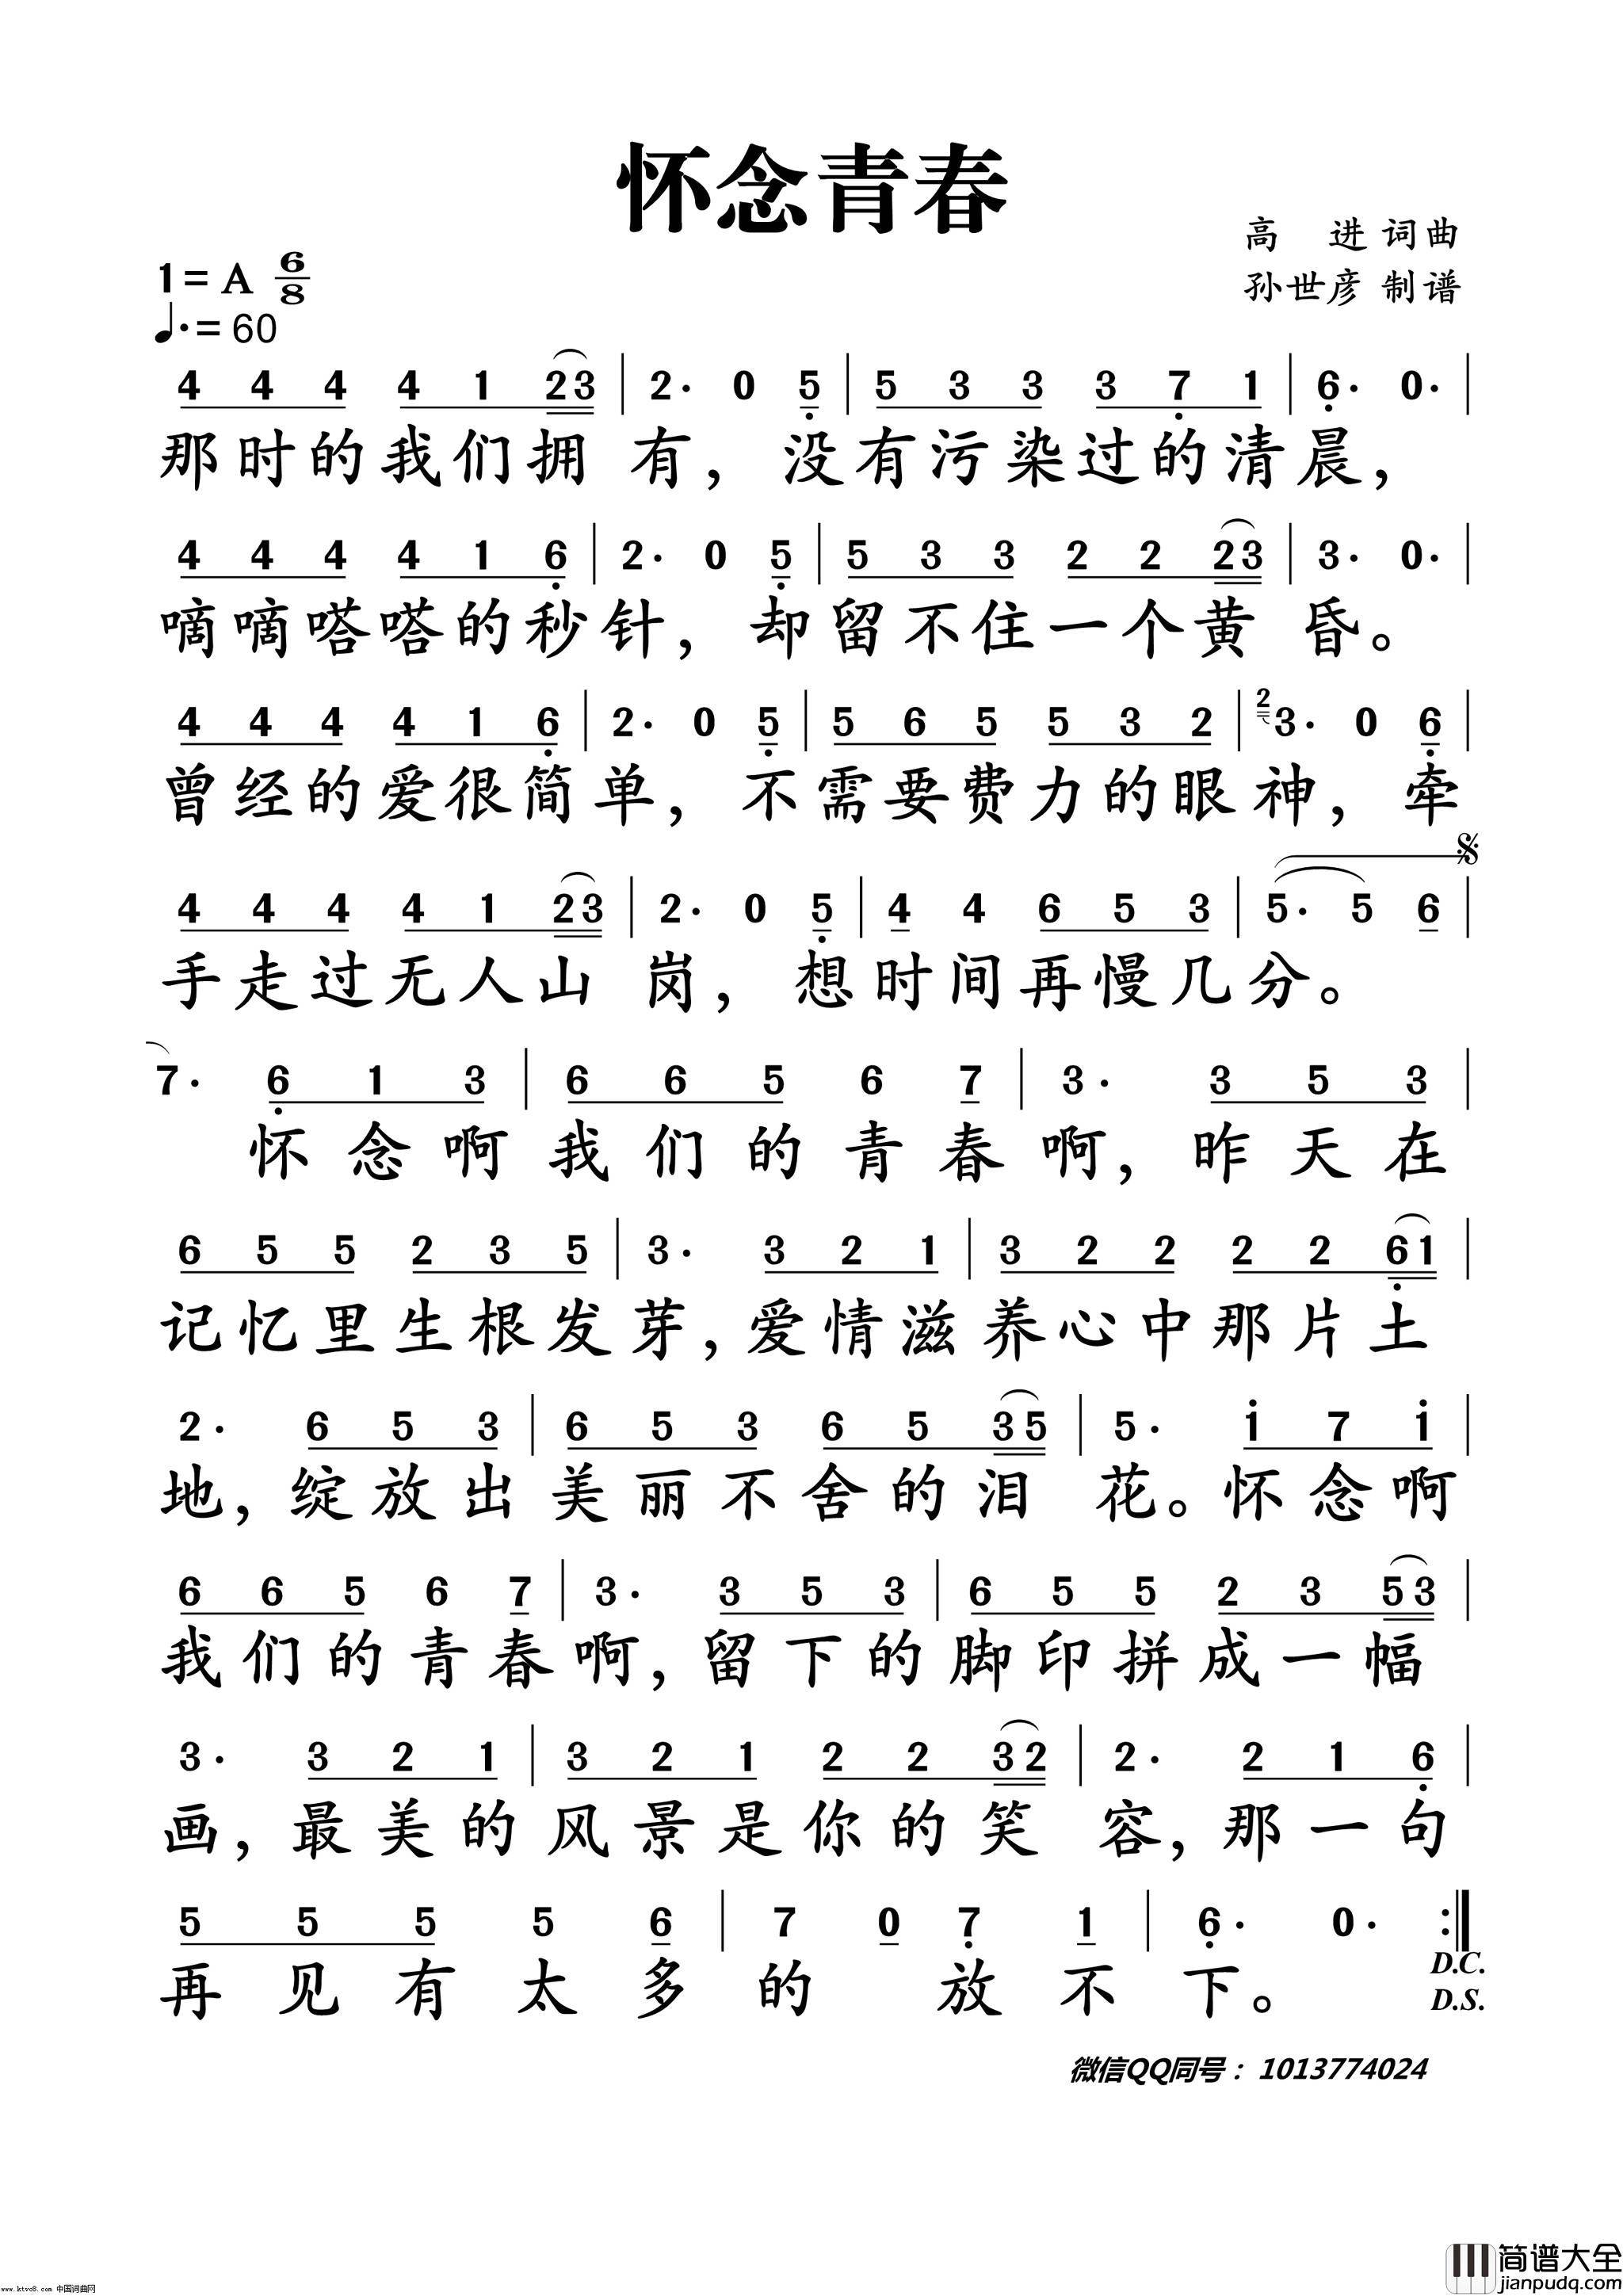 怀念青春
高 进 词曲
1= A 6/8
孙世彦 制谱
♩. = 60
4 4 4 4 1 2 3 | 2· 0 5̣ | 5 3 3 3 7̣ 1 | 6̣· 0· |
那时的我们拥有，没有污染过的清晨，
4 4 4 4 1 6̣ | 2· 0 5̣ | 5 3 3 2 2 2 3 | 3· 0· |
嘀嘀嗒嗒的秒针，却留不住一个黄昏。
4 4 4 4 1 6̣ | 2· 0 5̣ | 5 6 5 5 3 2 | 2 3· 0 6̣ |
曾经的爱很简单，不需要费力的眼神，牵
4 4 4 4 1 2 3 | 2· 0 5̣ | 4 4 6 5 3 | 5· 5 6 |
手走过无人山岗，想时间再慢几分。
7· 6̣ 1 3 | 6 6 5 6 7 | 3· 3 5 3 |
怀念啊我们的青春啊，昨天在
6 5 5 2 3 5 | 3· 3 2 1 | 3 2 2 2 2 6̣ 1 |
记忆里生根发芽，爱情滋养心中那片土
2· 6 5 3 | 6 5 3 6 5 3 5 | 5· 1̇ 7 1̇ |
地，绽放出美丽不舍的泪花。怀念啊
6 6 5 6 7 | 3· 3 5 3 | 6 5 5 2 3 5 3 |
我们的青春啊，留下的脚印拼成一幅
3· 3 2 1 | 3 2 1 2 2 3 2 | 2· 2 1 6̣ |
画，最美的风景是你的笑容，那一句
5 5 5 5 6 | 7 0 7̣ 1 | 6̣· 0· :|
再见有太多的放不下。
D.C.
D.S.
微信QQ同号：1013774024
简谱大全
jianpudq.com
www.ktvc8.com 中国词曲网